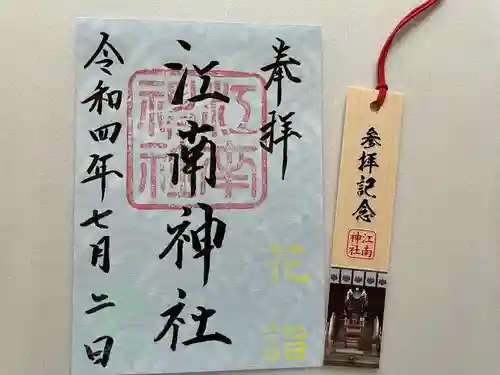 奉拝
江南神社
令和四年七月二日
江南
神社
花詣
参拝記念
江南
神社